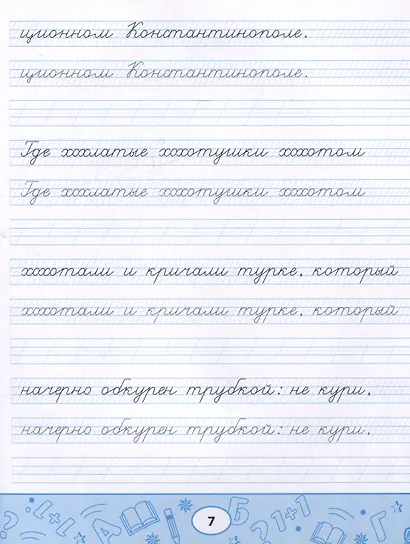 ционном Константинополе.
ционном Константинополе.
Где хохлатые хохотушки хохотом
Где хохлатые хохотушки хохотом
хохотали и кричали турке, который
хохотали и кричали турке, который
начерно обкурен трубкой: не кури,
начерно обкурен трубкой: не кури,
? 1+1 А 7 Б ? 21+1 Г